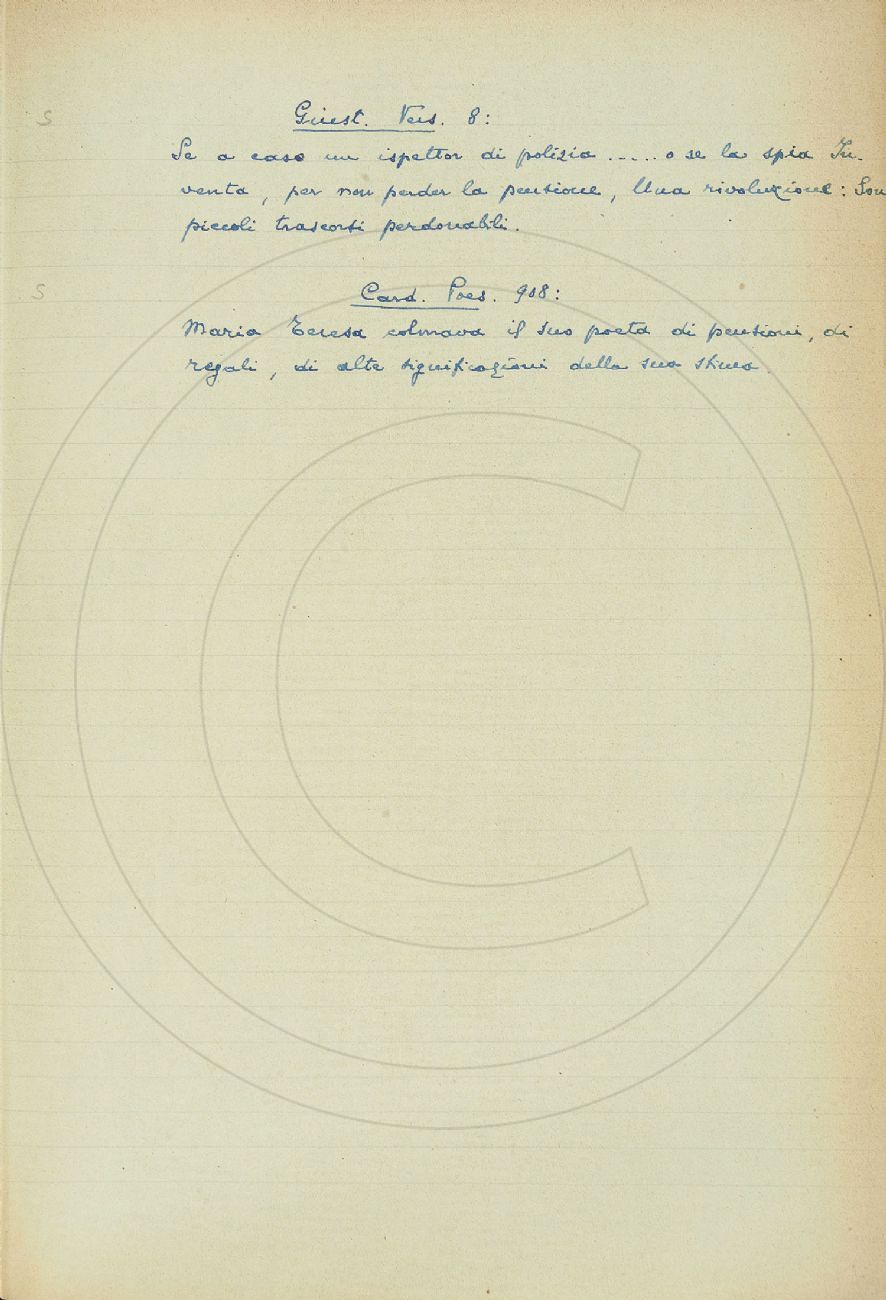 S
Giust. Vers. 8:
Se a caso un ispettor di polizia ..... o se la spia In-
venta, per non perder la pensione, Una rivoluzione: Son
piccoli trascorsi perdonabili.
S
Card. Poes. 908:
Maria Teresa colmava il suo poeta di pensioni, di
regali, di alte significazioni della sua stima.